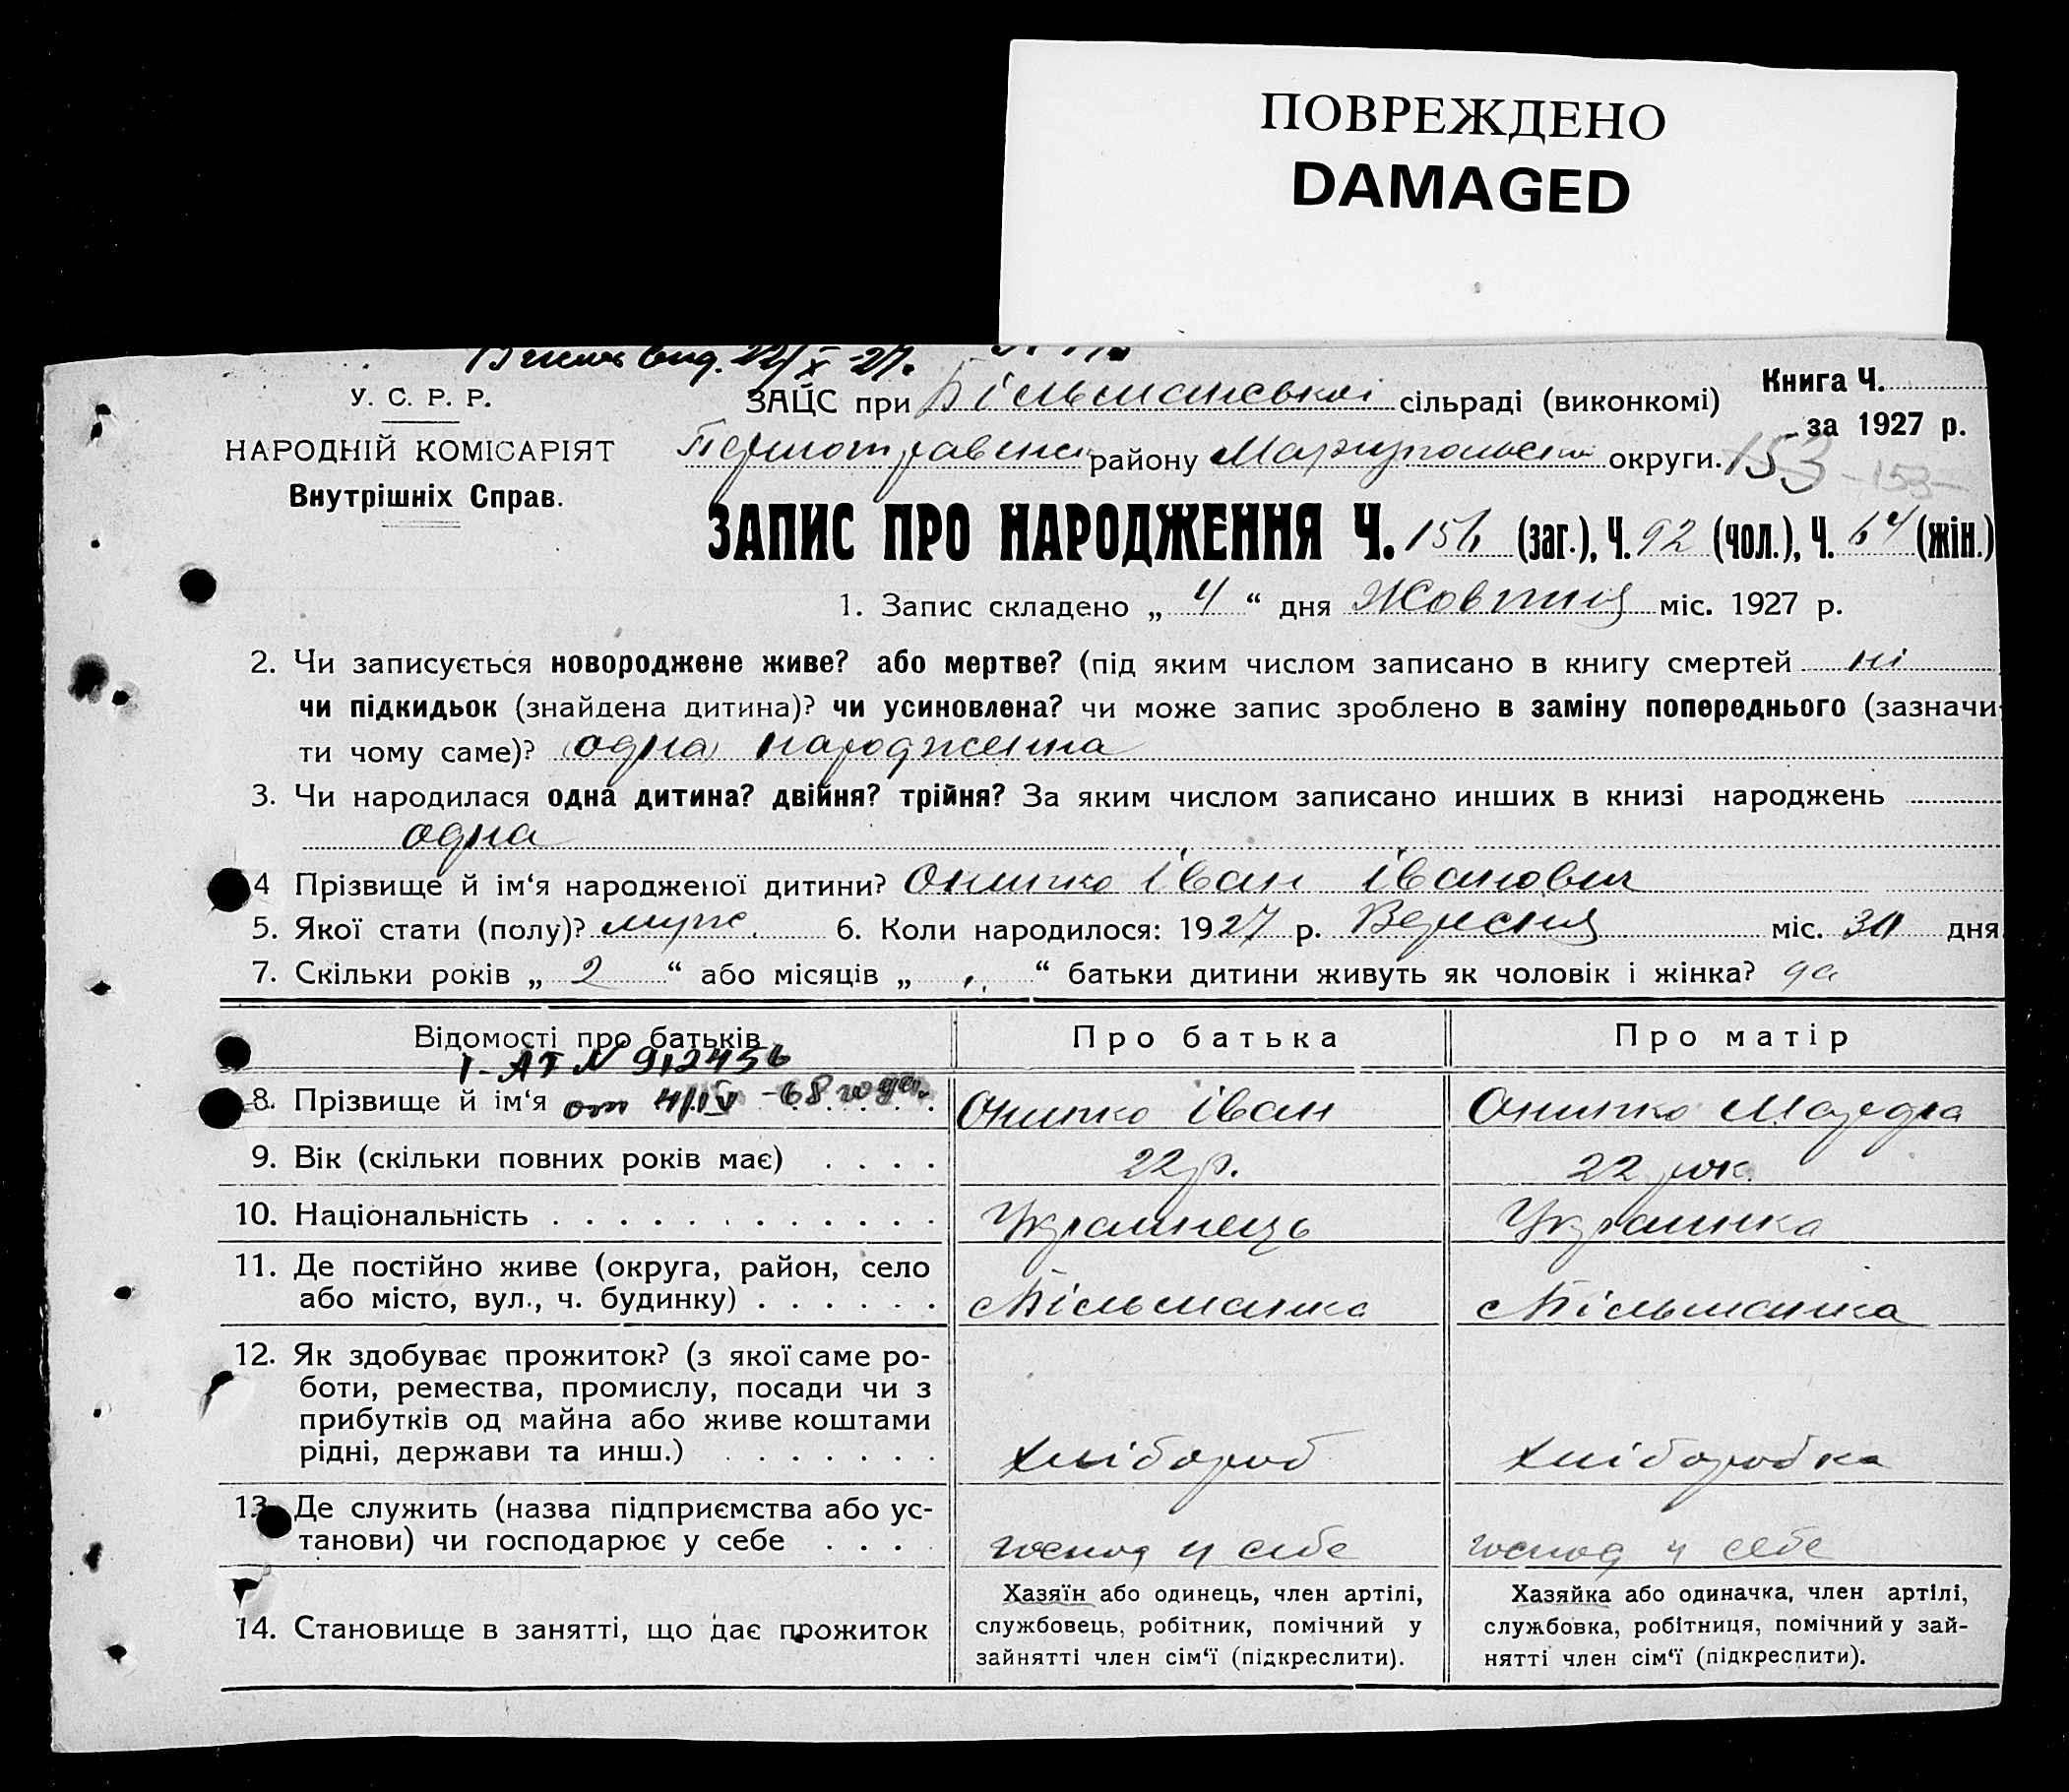 ПОВРЕЖДЕНО
DAMAGED
вид. 22/X-27.
У. С. Р. Р.
НАРОДНІЙ КОМІСАРІЯТ
Внутрішніх Справ.
Книга Ч.
за 1927 р.
ЗАЦС при Більманській сільраді (виконкомі)
Першотравенс району Маріупольськ округи. 153 -153-
ЗАПИС ПРО НАРОДЖЕННЯ Ч. 156 (заг.), Ч. 92 (чол.), Ч. 64 (жін.)
1. Запис складено „ 4 “ дня Жовтня міс. 1927 р.
2. Чи записується новороджене живе? або мертве? (під яким числом записано в книгу смертей ні
чи підкидьок (знайдена дитина)? чи усиновлена? чи може запис зроблено в заміну попереднього (зазначи-
ти чому саме)? (одна) народженна
3. Чи народилася одна дитина? двійня? трійня? За яким числом записано инших в книзі народжень
одна
4 Прізвище й ім‘я народженої дитини? Онипко Іван Іванович
5. Якої стати (полу)? муж. 6. Коли народилося: 1927 р. Вересня міс. 30 дня
7. Скільки років „ 2 “ або місяців „ “ батьки дитини живуть як чоловік і жінка? да
Відомості про батьків Про батька Про матір
I-АТ N 912456
8. Прізвище й ім‘я Онипко Іван Онипко
от 4/IV -68 года.
9. Вік (скільки повних років має) 22 р. 22 рок.
10. Національність Украинець Украинка
11. Де постійно живе (округа, район, село
або місто, вул., ч. будинку) Більманка Більманка
12. Як здобуває прожиток? (з якої саме ро-
боти, ремества, промислу, посади чи з
прибутків од майна або живе коштами
рідні, держави та инш.) хлібороб хліборобка
13. Де служить (назва підприємства або ус-
танови) чи господарює у себе господ у себе господ у себе
14. Становище в занятті, що дає прожиток
Хазяїн або одинець, член артілі,
службовець, робітник, помічний у
зайнятті член сім‘ї (підкреслити).
Хазяйка або одиначка, член артілі,
службовка, робітниця, помічний у зай-
нятті член сім‘ї (підкреслити).